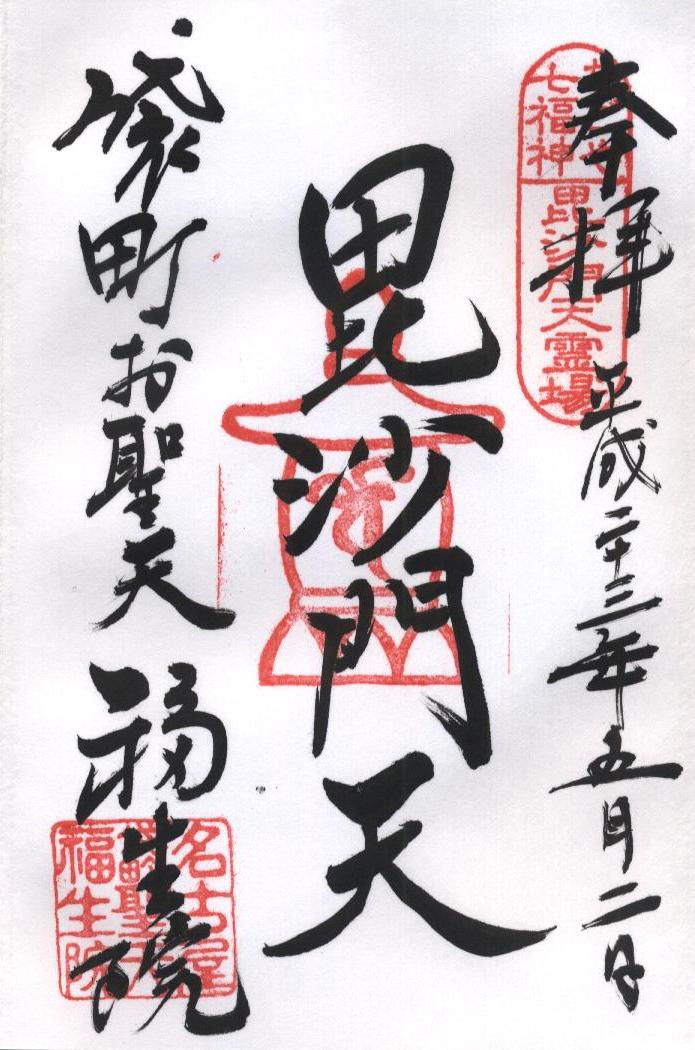 奉拝
平成二十三年五月二日
七福神
毘沙門天霊場
毘沙門天
袋町お聖天
福生院
名古屋
福生院